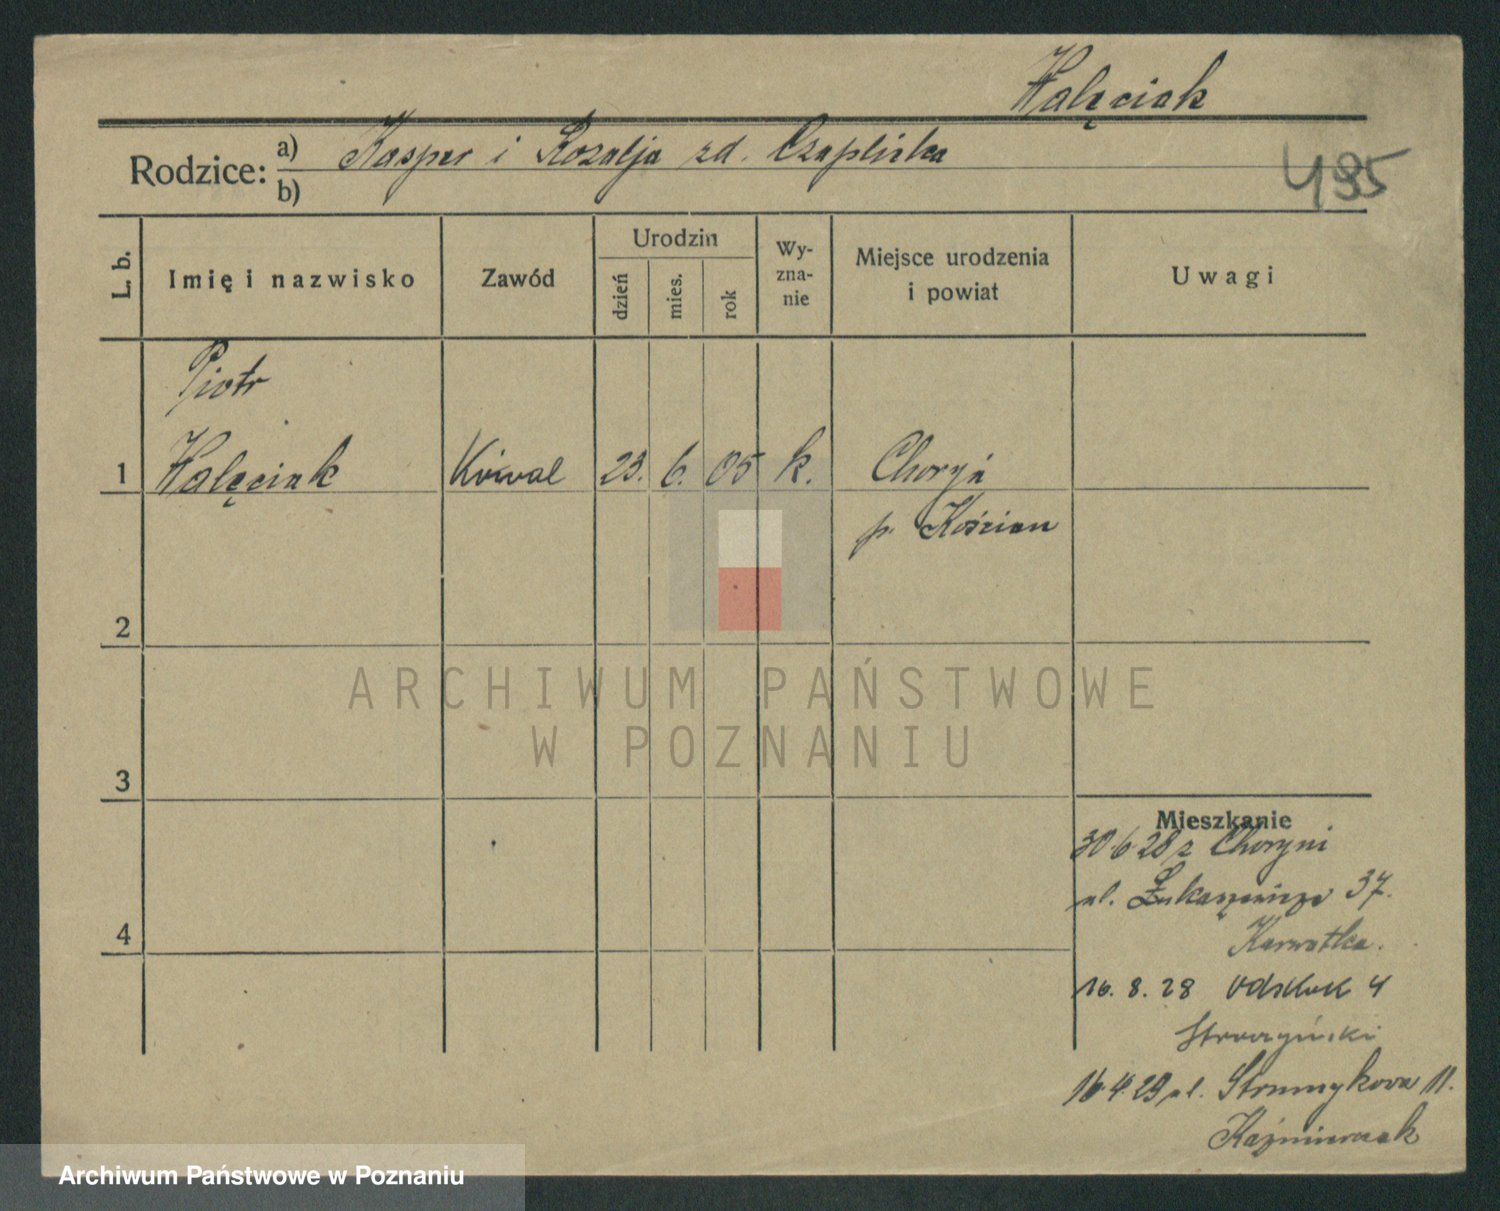 Walęciak
Rodzice: a) Kasper i Rozalja zd. Czaplicka
b)
495
L. b.
Imię i nazwisko
Zawód
Urodzin
dzień
mies.
rok
Wy-
zna-
nie
Miejsce urodzenia
i powiat
Uwagi
Piotr
1 Walęciak Kowal 23. 6. 05 k. Choryń
p. Kościan
2
ARCHIWUM PAŃSTWOWE
W POZNANIU
3
Mieszkanie
30.6.28 z Choryni
ul. Łukaszewicza 37.
Karwatka.
4
16. 8. 28 4
16.4.29 ul. Strumykowa 11.
Kaźmierczak
Archiwum Państwowe w Poznaniu